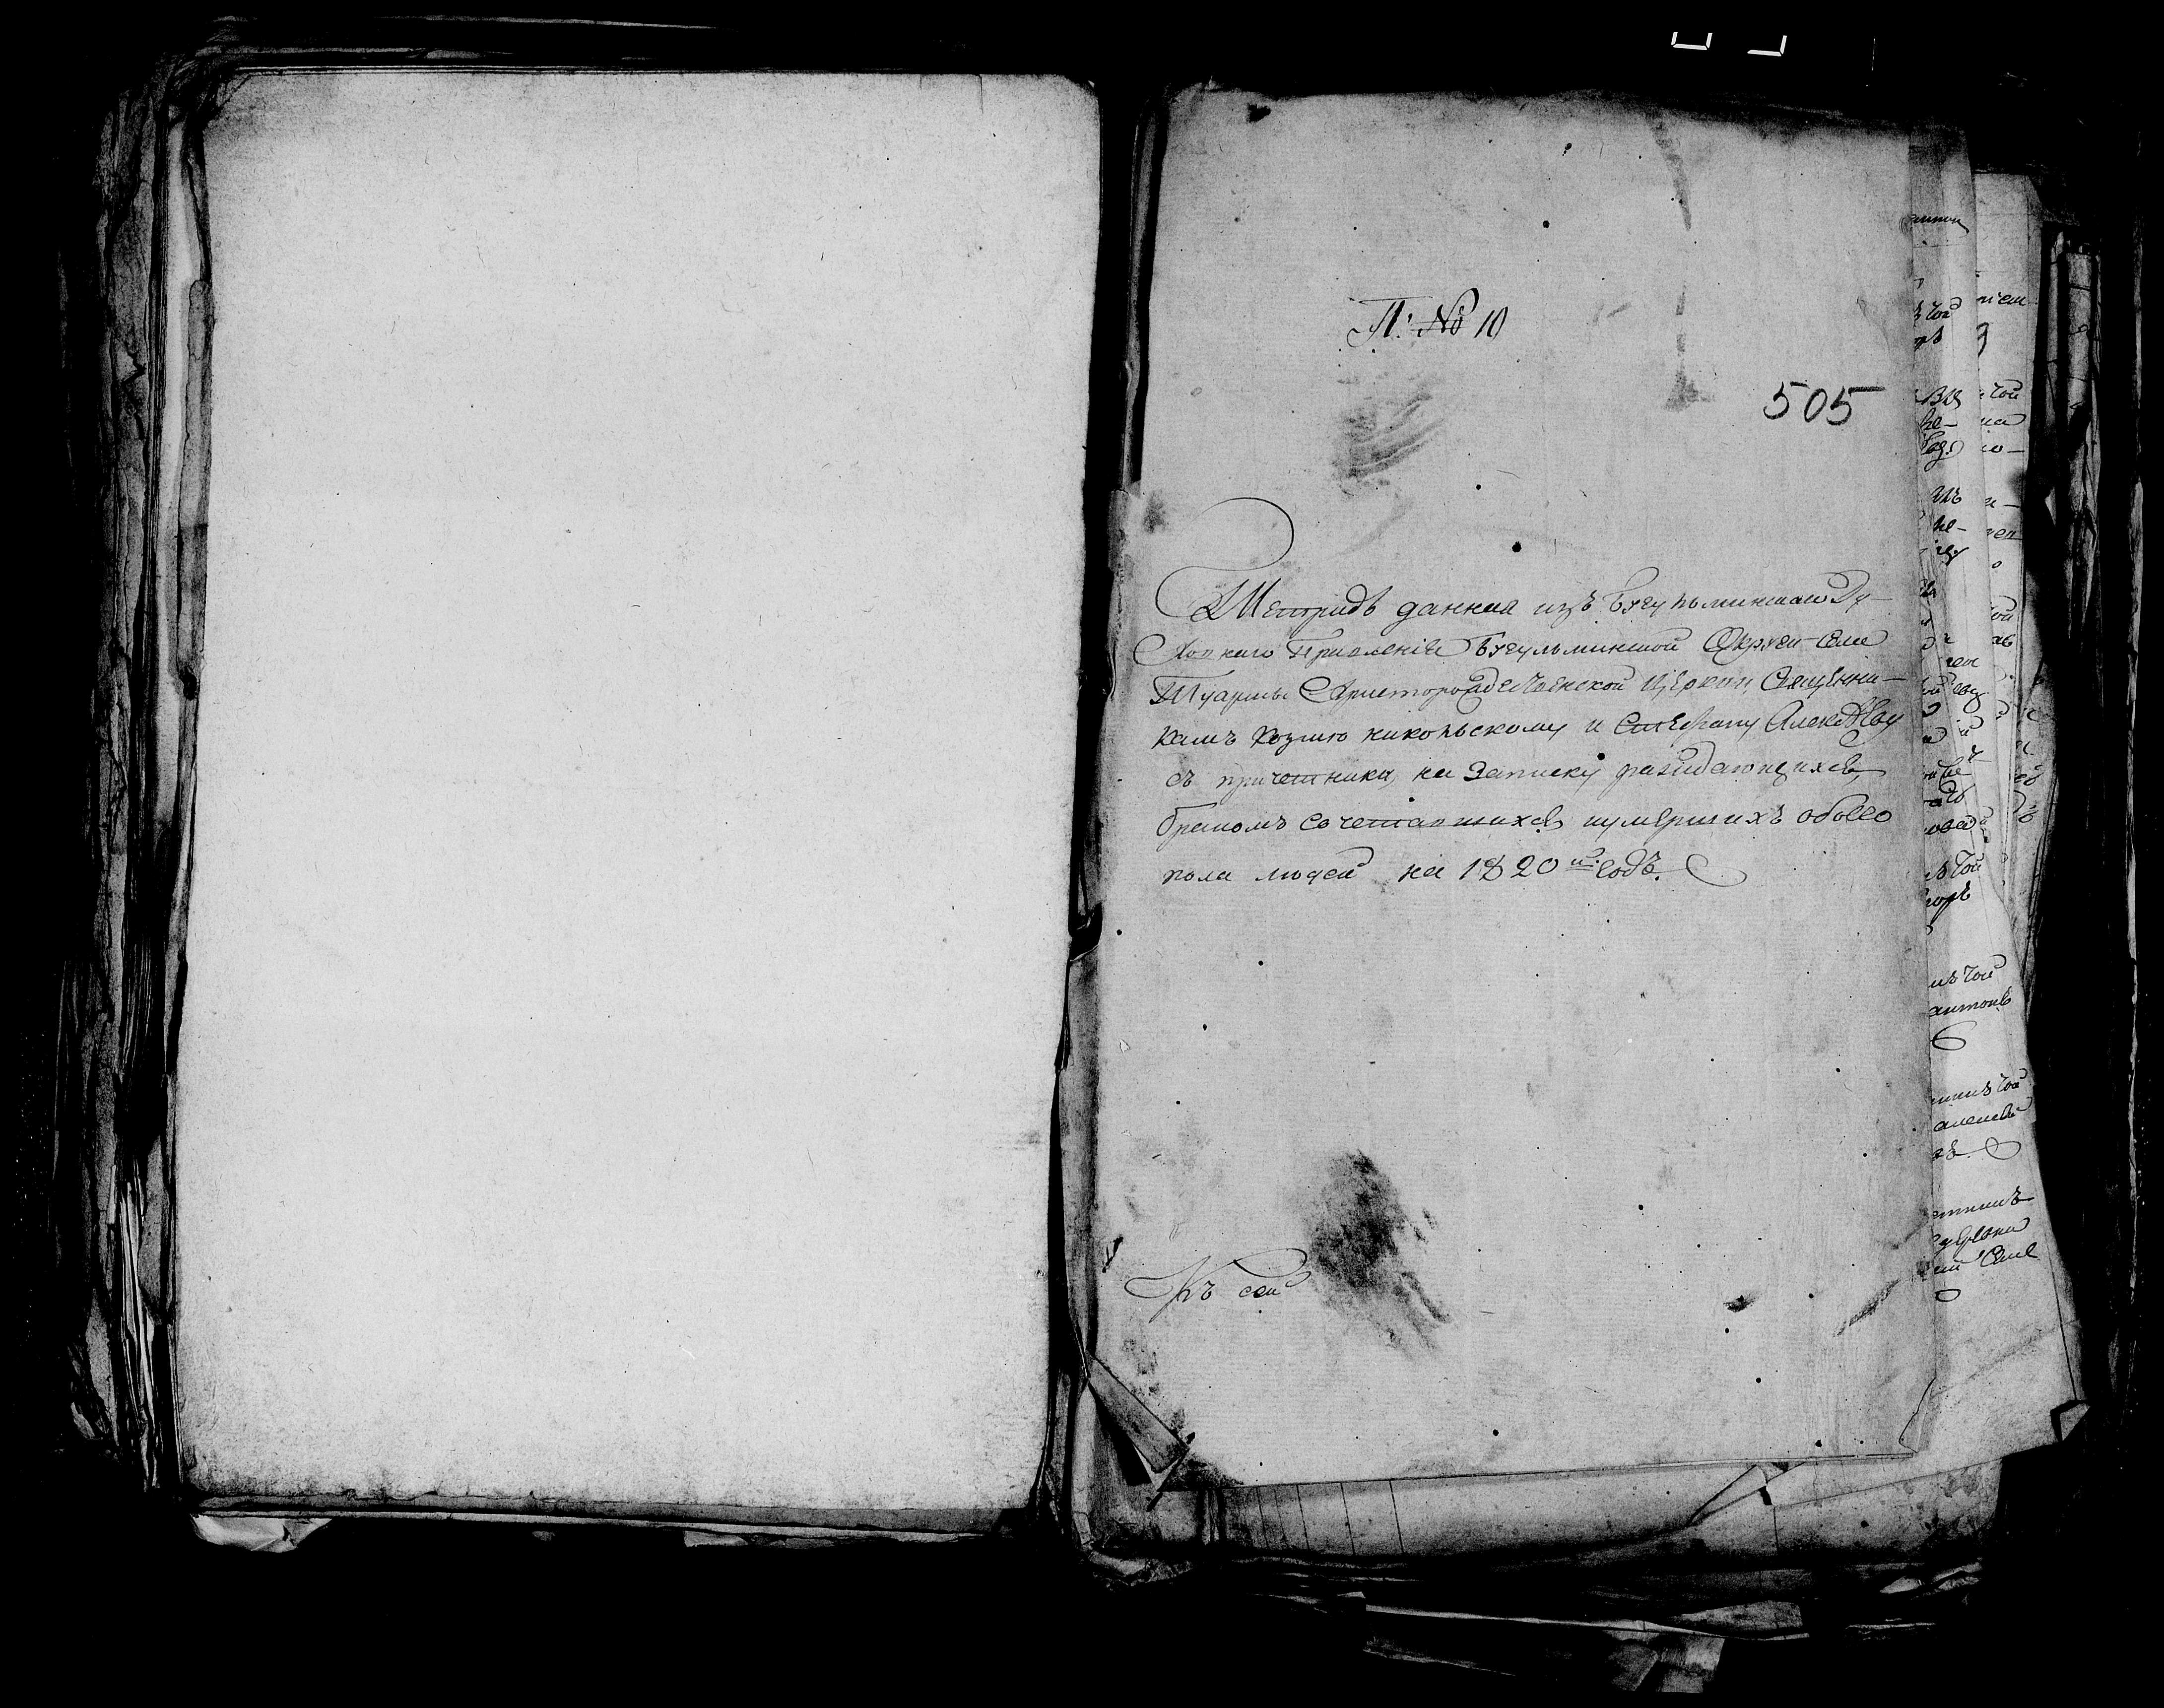 П. № 10
505
Тетрадь данная изъ Бугульминскаго Ду-
ховнаго Правленія Бугульминской Округи села
Туармы Христорождественской Церкви, Священни-
камъ Козмѣ никольскому и Стефану Алексѣеву
съ причетники, на Записку раждающихся,
бракомъ сочетавшихся иумершихъ обоего
пола людей на 1820 й годъ.
Къ сей